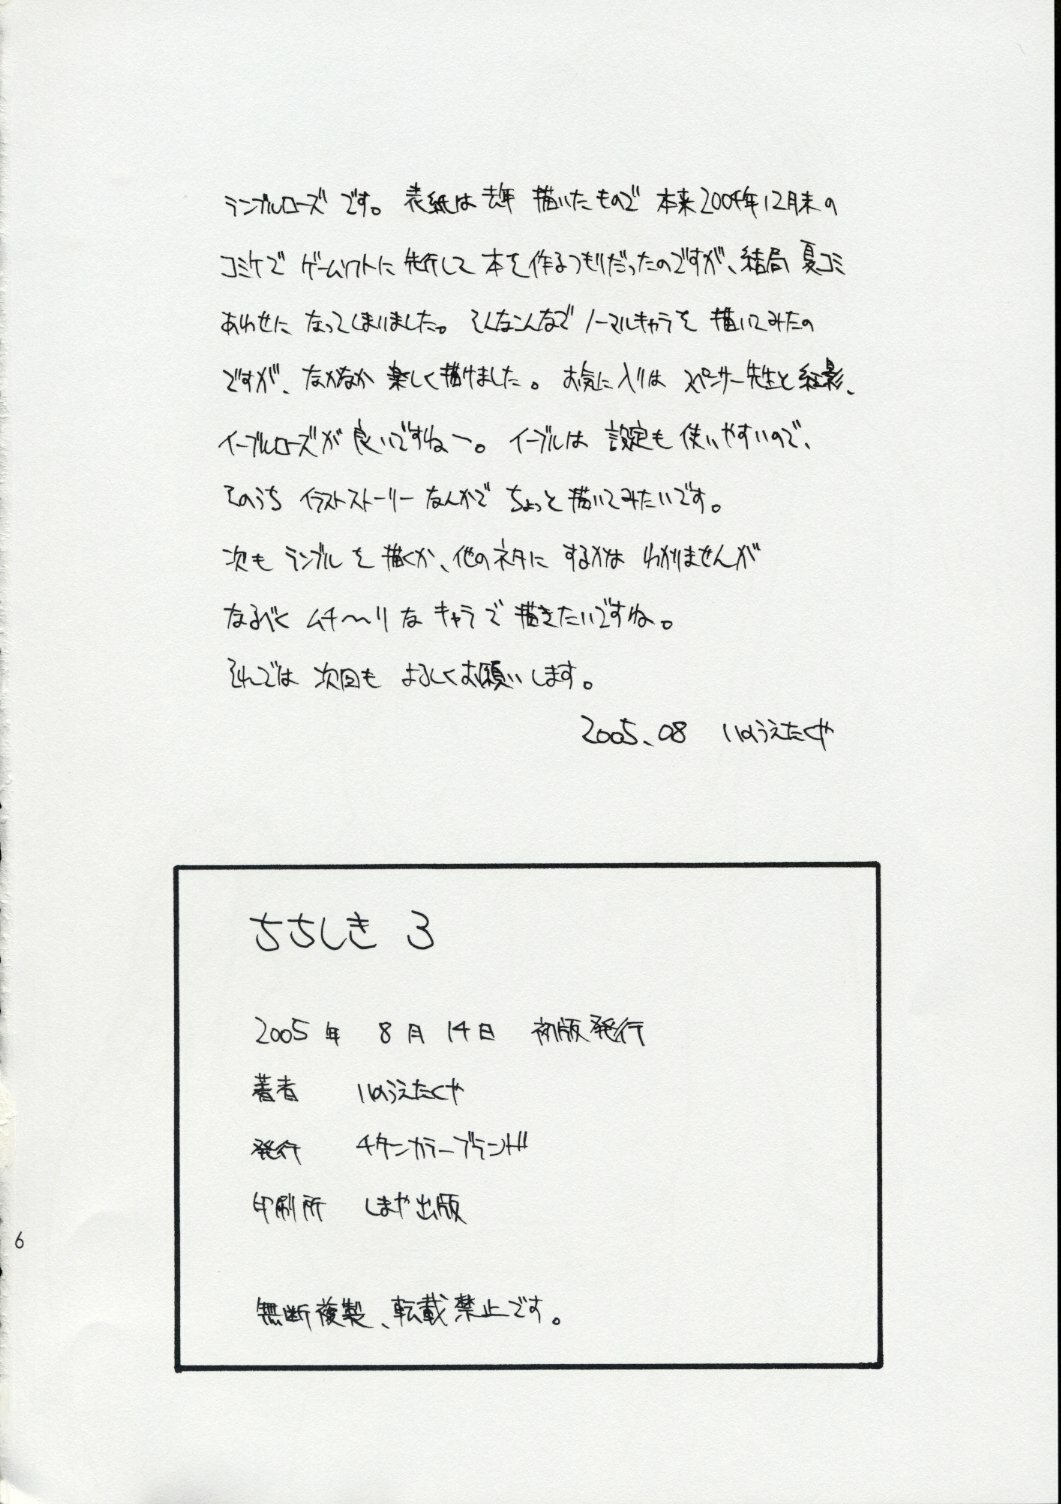 ランブルローズです。表紙は去年描いたもので本来2004年12月末の
コミケでゲームソフトに先行して本を作るつもりだったのですが、結局夏コミ
あわせになってしまいました。そんなこんなでノーマルキャラを描いてみたの
ですが、なかなか楽しく描けました。お気に入りはスペンサー先生と紅影、
イーブルローズが良いですねー。イーブルは設定も使いやすいので、
そのうちイラストストーリーなんかでちょっと描いてみたいです。
次もランブルを描くか、他のネタにするかはわかりませんが
なるべくムチ〜リなキャラで描きたいですね。
それでは次回もよろしくお願いします。
2005.08 いのうえたくや
ちちしき 3
2005年 8月 14日 初版発行
著者 いのうえたくや
発行 チタンカラーブランド
印刷所 しまや出版
6
無断複製、転載禁止です。